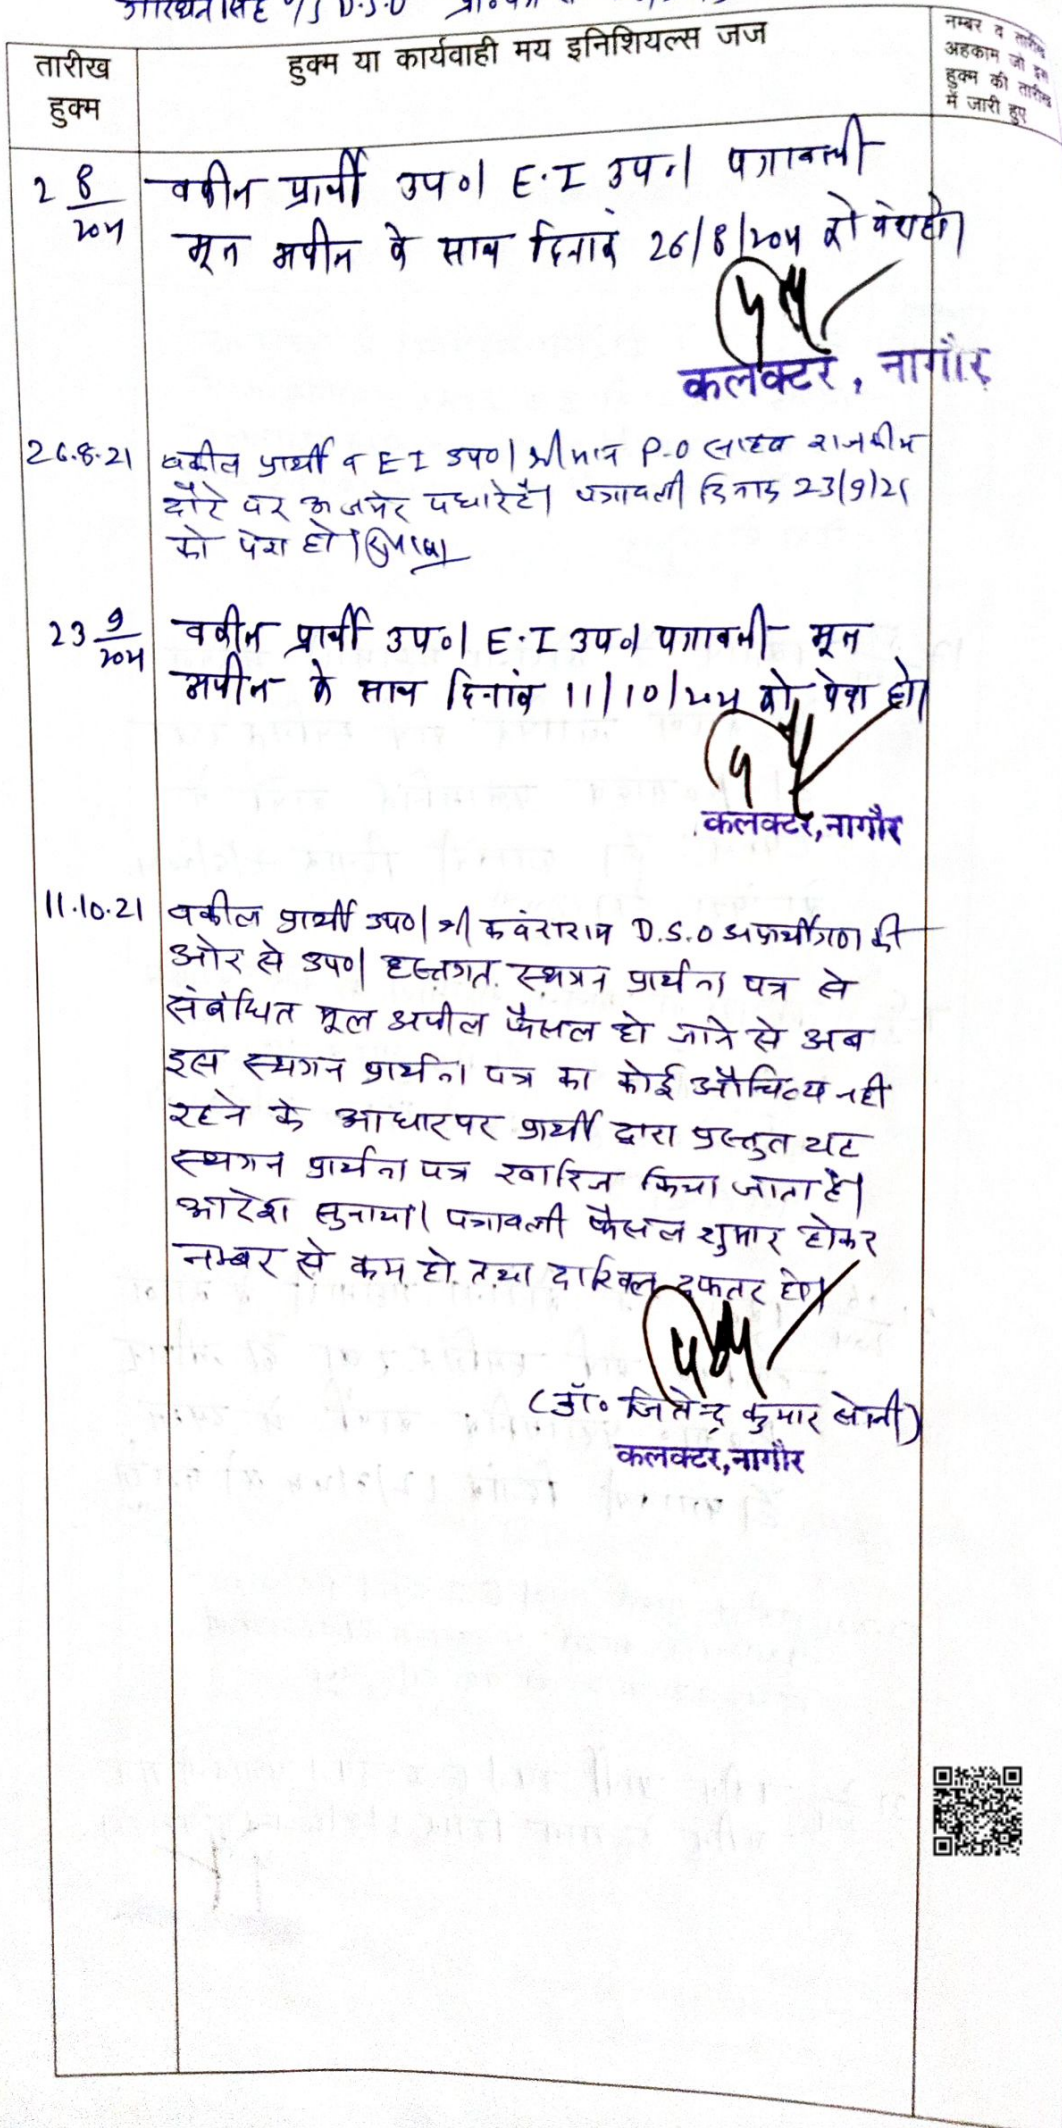 D.S.O
तारीख
हुक्म
हुक्म या कार्यवाही मय इनिशियल्स जज
नम्बर व तारीख
अहकाम जो इस
हुक्म की तारीख
में जारी हुए
2 8/2021 वकील प्रार्थी उप०। E.I उप०। पत्रावली
मूल अपील के साथ दिनांक 26/8/2021 को पेश हो।
कलक्टर, नागौर
26.8.21 वकील प्रार्थी व E I उप०। श्रीमान P.O साहब राजकीय
दौरे पर अजमेर पधारे है। पत्रावली दिनांक 23/9/21
को पेश हो।
23 9/2021 वकील प्रार्थी उप०। E.I उप०। पत्रावली मूल
अपील के साथ दिनांक 11/10/2021 को पेश हो।
कलक्टर, नागौर
11.10.21 वकील प्रार्थी उप०। श्री कवंराराम D.S.O अप्रार्थीगण की
ओर से उप०। हस्तगत स्थगन प्रार्थना पत्र से
संबंधित मूल अपील फैसल हो जाने से अब
इस स्थगन प्रार्थना पत्र का कोई औचित्य नहीं
रहने के आधार पर प्रार्थी द्वारा प्रस्तुत यह
स्थगन प्रार्थना पत्र खारिज किया जाता है।
आदेश सुनाया। पत्रावली फैसल शुमार होकर
नम्बर से कम हो तथा दाखिल दफ्तर हो।
(डॉ० जितेन्द्र कुमार सोनी)
कलक्टर, नागौर